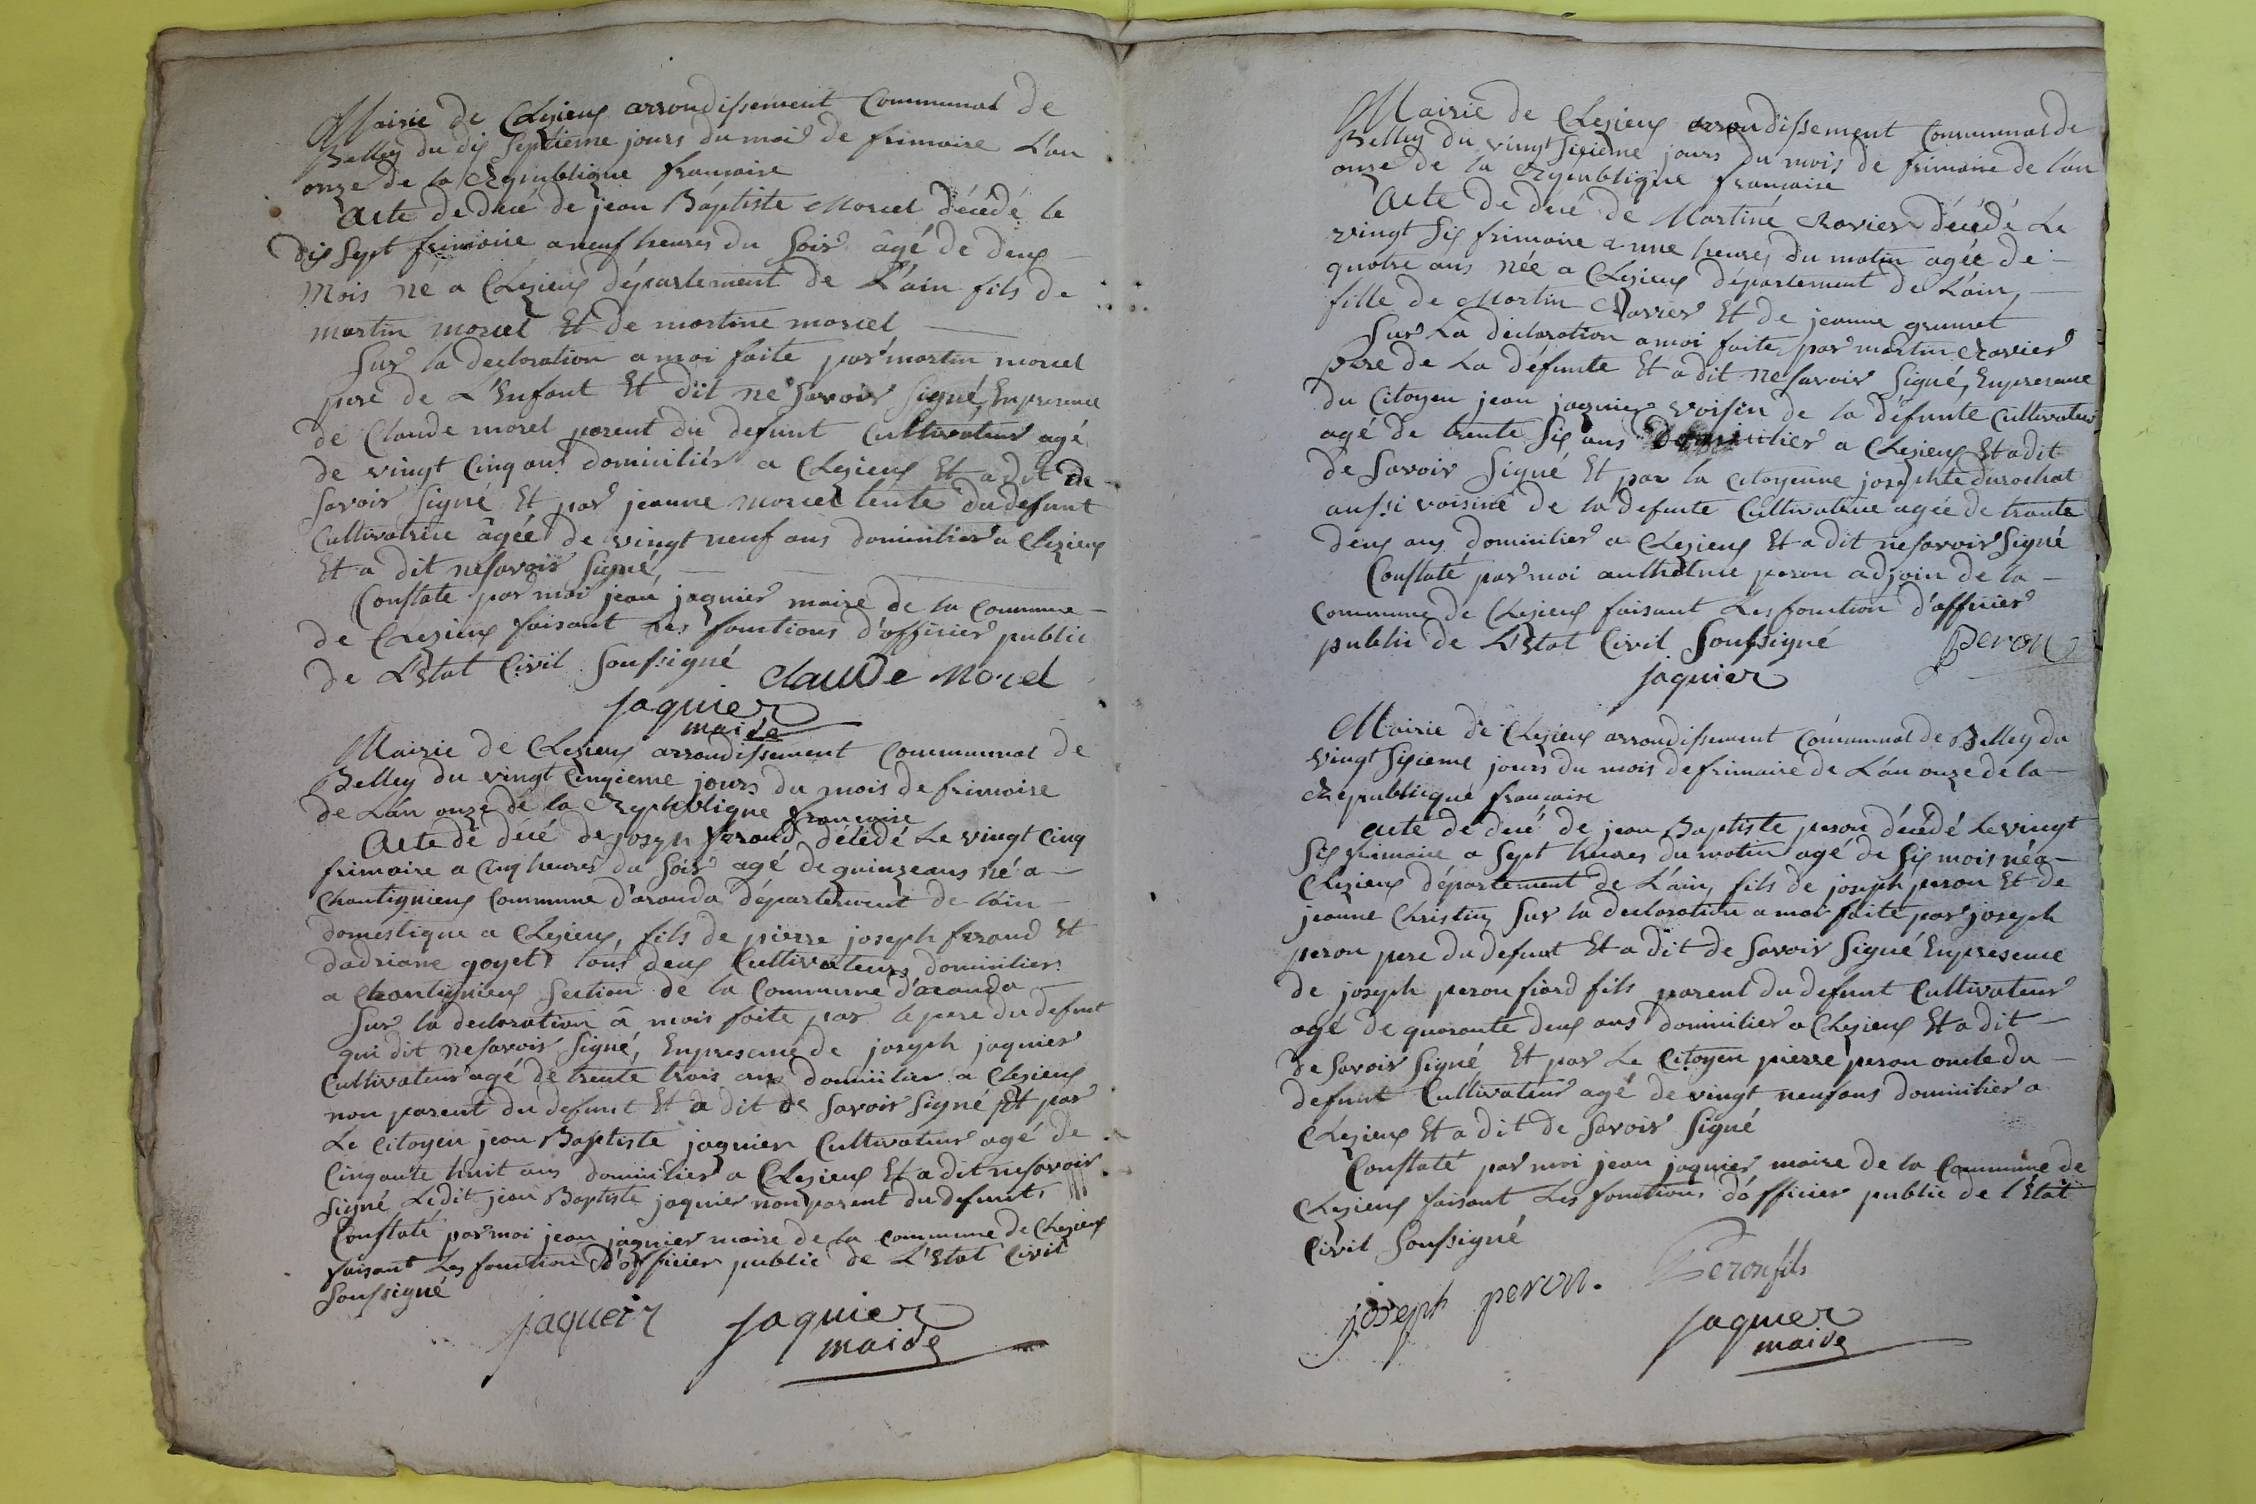 Mairie de Clezieux arrondissement Communal de
Belley du dix Septieme jours du mois de frimaire L'an
onze de la Republique francaise
Acte de decé de jean Baptiste Morcel décédé le
dix Sept frimaire a neuf heures du Soir âgé de deux
Mois né a Clezieux département de L'ain fils de
martin morcel Et de martine morcel
Sur la declaration a moi faite par martin morcel
pere de L'Enfant Et dit ne Savoir Signé, Enpresence
de Claude morel parent du defunt Cultivateur agé
de vingt Cinq ans domicilier a Clezieux Et a dit de
Savoir Signé Et par jeanne morcel tente du defunt
Cultivatrice âgée de vingt neuf ans domicilier a Clezieux
Et a dit ne Savoir Signé,
Constaté par moi jean jaquier maire de la Commune
de Clezieux faisant Les fonctions d'officier public
de L'Etat Civil Soussigné Claude Morel
jaquier
maire
Mairie de Clezieux arrondissement Communal de
Belley du vingt Cinqieme jours du mois de frimaire
de L'an onze de la Republique francaise
Acte de decé de joseph ferand décédé Le vingt Cinq
frimaire a Cinq heures du Soir agé de quinze ans né a
Chantignieux Commune d'aranda département de l'ain
domestique a Clezieux, fils de pierre joseph ferand Et
dadriane goyet tous deux Cultivateurs domicilier
a Chantignieux Section de la Commune d'aranda
Sur la declaration a mois faite par le pere du defunt
qui dit ne Savoir Signé, Enpresence de joseph jaquier
Cultivateur agé de trente trois ans domicilier a Clezieux
non parent du defunt Et a dit de Savoir Signé Et par
Le Citoyen jean Baptiste jaquier Cultivateur agé de
Cinqante huit ans domicilier a Clezieux Et a dit ne Savoir
Signé Ledit jean Baptiste jaquier non parent du defunt,
Constaté par moi jean jaquier maire de la commune de Clezieux
faisant Les fonction d'officier public de L'Etat Civil
Soussigné
jaqueir jaquier
maire
Mairie de Clezieux arrondissement Communal de
Belley du vingt Sixieme jours du mois de frimaire de l'an
onze de la Republique francaise
Acte de decé de Martine Ravier décédé Le
vingt Six frimaire a une heures du matin agée de
quatre ans née a Clezieux département de L'ain,
fille de Martin Ravier Et de jeanne grumet
Sur La declaration a moi faite par martin Ravier
pere de La défunte Et a dit ne Savoir Signé, Enpresence
du Citoyen jean jaquier voisin de la défunte Cultivateur
agé de trente Six ans domicilier a Clezieux Et a dit
de Savoir Signé Et par la citoyenne josephte durochat
aussi voisine de la defunte Cultivatrice agée de trante
deux ans domicilier a Clezieux Et a dit ne Savoir Signé
Constaté par moi anthelme peron adjoin de la
commune de Clezieux faisant Les fonction d'officier
public de L'Etat Civil Soussigné Peron
jaquier
Mairie de Clezieux arrondissement Communal de Belley du
vingt Sixieme jours du mois de frimaire de L'an onze de la
Republique francaise
Acte de decé de jean Baptiste peron décédé Le vingt
Six frimaire a Sept heures du matin agé de Six mois né a
Clezieux département de L'ain, fils de joseph peron Et de
jeanne Christin, Sur la declaration a moi faite par joseph
peron pere du defunt Et a dit de Savoir Signé Enpresence
de joseph peron fiard fils parent du defunt Cultivateur
agé de quarante deux ans domicilier a Clezieux Et a dit
de Savoir Signé Et par Le Citoyen pierre peron oncle du
defunt Cultivateur agé de vingt neuf ans domicilier a
Clezieux Et a dit de Savoir Signé
Constaté par moi jean jaquier maire de la Commune de
Clezieux faisant Les fonctions d'officier public de l'Etat
Civil Soussigné
joseph peron. Peron fils
jaquier
maire